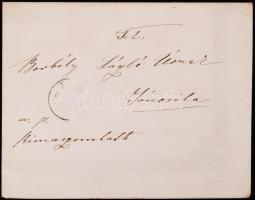 Tek.
Borbély László Úrnak
Jánosiba
u. p.
Rimaszombath